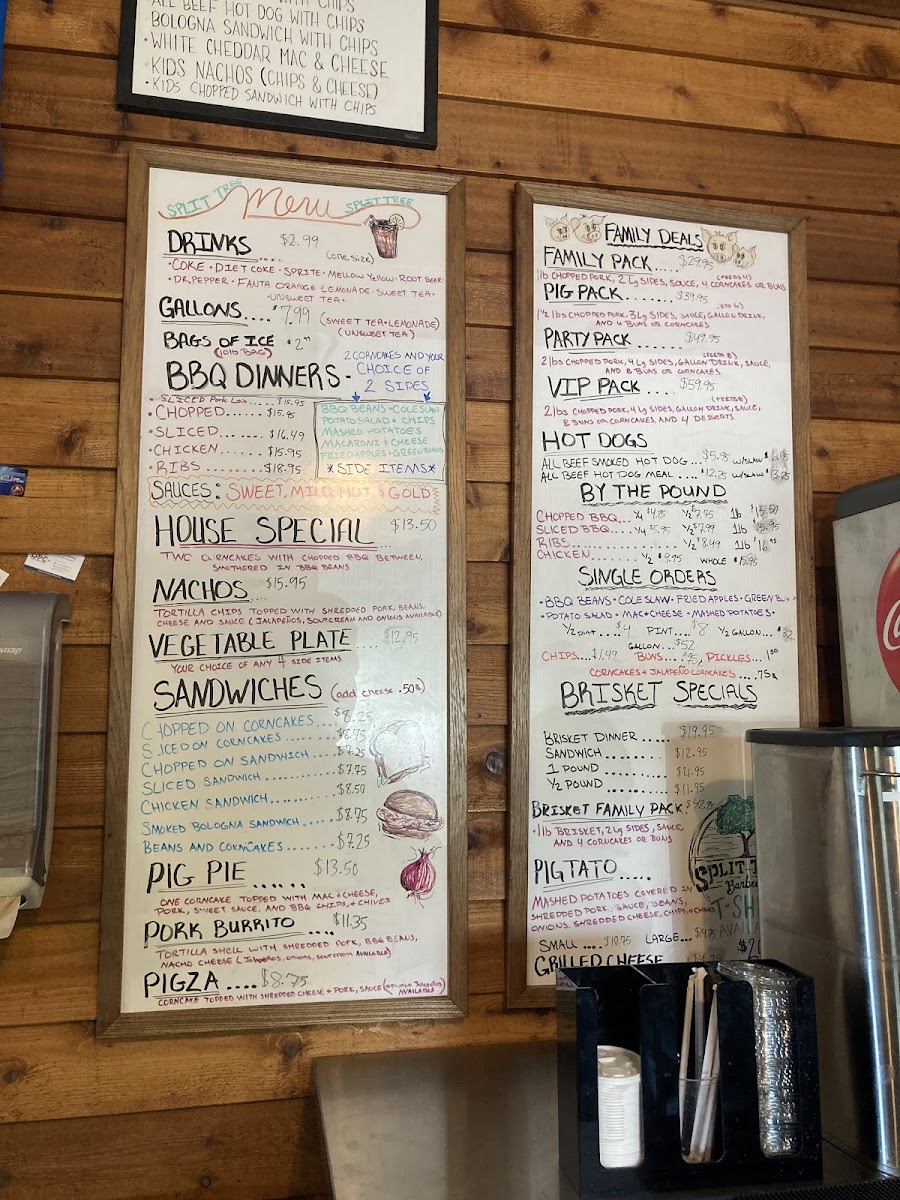 ALL BEEF HOT DOG WITH CHIPS
BOLOGNA SANDWICH WITH CHIPS
•WHITE CHEDDAR MAC & CHEESE
•KIDS NACHOS (CHIPS & CHEESE)
•KIDS CHOPPED SANDWICH WITH CHIPS
SPLIT TREE Menu SPLIT TREE
DRINKS $2.99
(one size)
•COKE•DIET COKE•SPRITE•MELLOW YELLOW•ROOT BEER
•DR.PEPPER•FANTA ORANGE•LEMONADE•SWEET TEA•
•UNSWEET TEA•
GALLONS.... $7.99 (SWEET TEA•LEMONADE)
(UNSWEET TEA)
BAGS OF ICE
(10lb BAG)
BBQ DINNERS - 2 CORNCAKES AND YOUR
CHOICE OF
2 SIDES
•SLICED Pork Loin... $15.95
•CHOPPED...... $15.95
•SLICED....... $16.49
•CHICKEN..... $15.95
•RIBS........ $18.95
BBQ BEANS•COLESLAW
POTATO SALAD • CHIPS
MASHED POTATOES
MACARONI & CHEESE
FRIED APPLES•GREEN BEANS
*SIDE ITEMS*
SAUCES: SWEET, MILD, HOT & GOLD
HOUSE SPECIAL $13.50
TWO CORNCAKES WITH CHOPPED BBQ BETWEEN,
SMOTHERED IN BBQ BEANS
NACHOS $15.95
TORTILLA CHIPS TOPPED WITH SHREDDED PORK, BEANS,
CHEESE AND SAUCE (JALAPEÑOS, SOURCREAM AND ONIONS AVAILABLE)
VEGETABLE PLATE .... $12.95
YOUR CHOICE OF ANY 4 SIDE ITEMS
SANDWICHES (add cheese .50¢)
CHOPPED ON CORNCAKES.... $8.25
SLICED ON CORNCAKES...... $8.45
CHOPPED ON SANDWICH ..... $7.25
SLICED SANDWICH ........... $7.75
CHICKEN SANDWICH.......... $8.50
SMOKED BOLOGNA SANDWICH ..... $8.75
BEANS AND CORNCAKES ....... $7.25
PIG PIE ...... $13.50
ONE CORNCAKE TOPPED WITH MAC & CHEESE,
PORK, SWEET SAUCE, AND BBQ CHIPS, & CHIVES
PORK BURRITO .... $11.35
TORTILLA SHELL WITH SHREDDED PORK, BBQ BEANS,
NACHO CHEESE (Jalapeños, onions, sourcream AVAILABLE)
PIGZA .... $8.75
CORNCAKE TOPPED WITH SHREDDED CHEESE & PORK, SAUCE (onions & Jalapeños AVAILABLE)
FAMILY DEALS
FAMILY PACK..... $29.95
(FEEDS 4)
1lb CHOPPED PORK, 2 Lg SIDES, SAUCE, 4 CORNCAKES OR BUNS
PIG PACK........ $39.95
1½ lbs CHOPPED PORK, 3 Lg SIDES, SAUCE, GALLON DRINK,
AND 6 BUNS OR CORNCAKES
PARTY PACK ...... $49.95
(FEEDS 8)
2 lbs CHOPPED PORK, 4 Lg SIDES, GALLON DRINK, SAUCE,
AND 8 BUNS OR CORNCAKES
VIP PACK ..... $59.95
(FEEDS 8)
2lbs CHOPPED PORK, 4 Lg SIDES, GALLON DRINK, SAUCE,
8 BUNS OR CORNCAKES, AND 4 DESSERTS
HOT DOGS
ALL BEEF SMOKED HOT DOG ... $5.95 w/SLAW
ALL BEEF HOT DOG MEAL .... $12.25 w/SLAW
BY THE POUND
CHOPPED BBQ... ¼ $4.75 ½ $7.75 1lb $15.50
SLICED BBQ.... ¼ $5.95 ½ $7.99 1lb $15.95
RIBS.................... ½ $8.49 1lb
CHICKEN............ ½ $9.75 WHOLE $15.95
SINGLE ORDERS
•BBQ BEANS•COLESLAW•FRIED APPLES•GREEN
•POTATO SALAD•MAC&CHEESE•MASHED POTATOES•
½ PINT.... $4 PINT.... $8 ½ GALLON...
GALLON... $52
CHIPS....$1.49 BUNS...... PICKLES....
CORNCAKES & JALAPEÑO CORNCAKES ....75¢
BRISKET SPECIALS
BRISKET DINNER ..... $19.95
SANDWICH ............ $12.95
1 POUND .............. $21.95
½ POUND ............. $11.95
BRISKET FAMILY PACK. $42.95
•1lb BRISKET, 2 Lg SIDES, SAUCE
AND 4 CORNCAKES OR BUNS
PIGTATO.....
MASHED POTATOES COVERED IN
SHREDDED PORK, SAUCE, BEANS,
ONIONS, SHREDDED CHEESE, CHIPS, & CHIVES
SMALL .... $10.75 LARGE... $14.75
GRILLED CHEESE
SPLIT-T
Barbe
T-SH
AVAIL